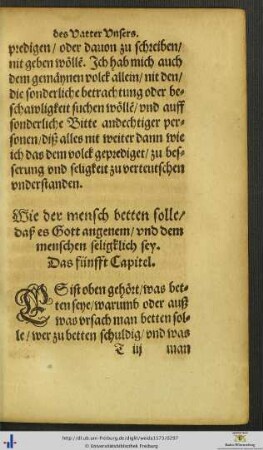 des Vatter Vnsers.
predigen/ oder dauon zu schreiben/
nit geben wöllē. Ich hab mich auch
dem gemäynen volck allein/ nit den/
die sonderliche betrachtung oder be-
schawligkeit suchen wöllē/ vnd auff
sonderliche Bitte andechtiger per-
sonen/ diß alles nit weiter dann wie
ich das dem volck geprediget/ zu bes-
serung vnd seligkeit zu verteutschen
vnderstanden.
Wie der mensch betten solle/
daß es Gott angenem/ vnd dem
menschen seligklich sey.
Das fünfft Capitel.
ES ist oben gehört/ was bet-
ten seye/ warumb oder auß
was vrsach man betten sol-
le/ wer zu betten schuldig/ vnd was
T iij man
© Universitätsbibliothek Freiburg